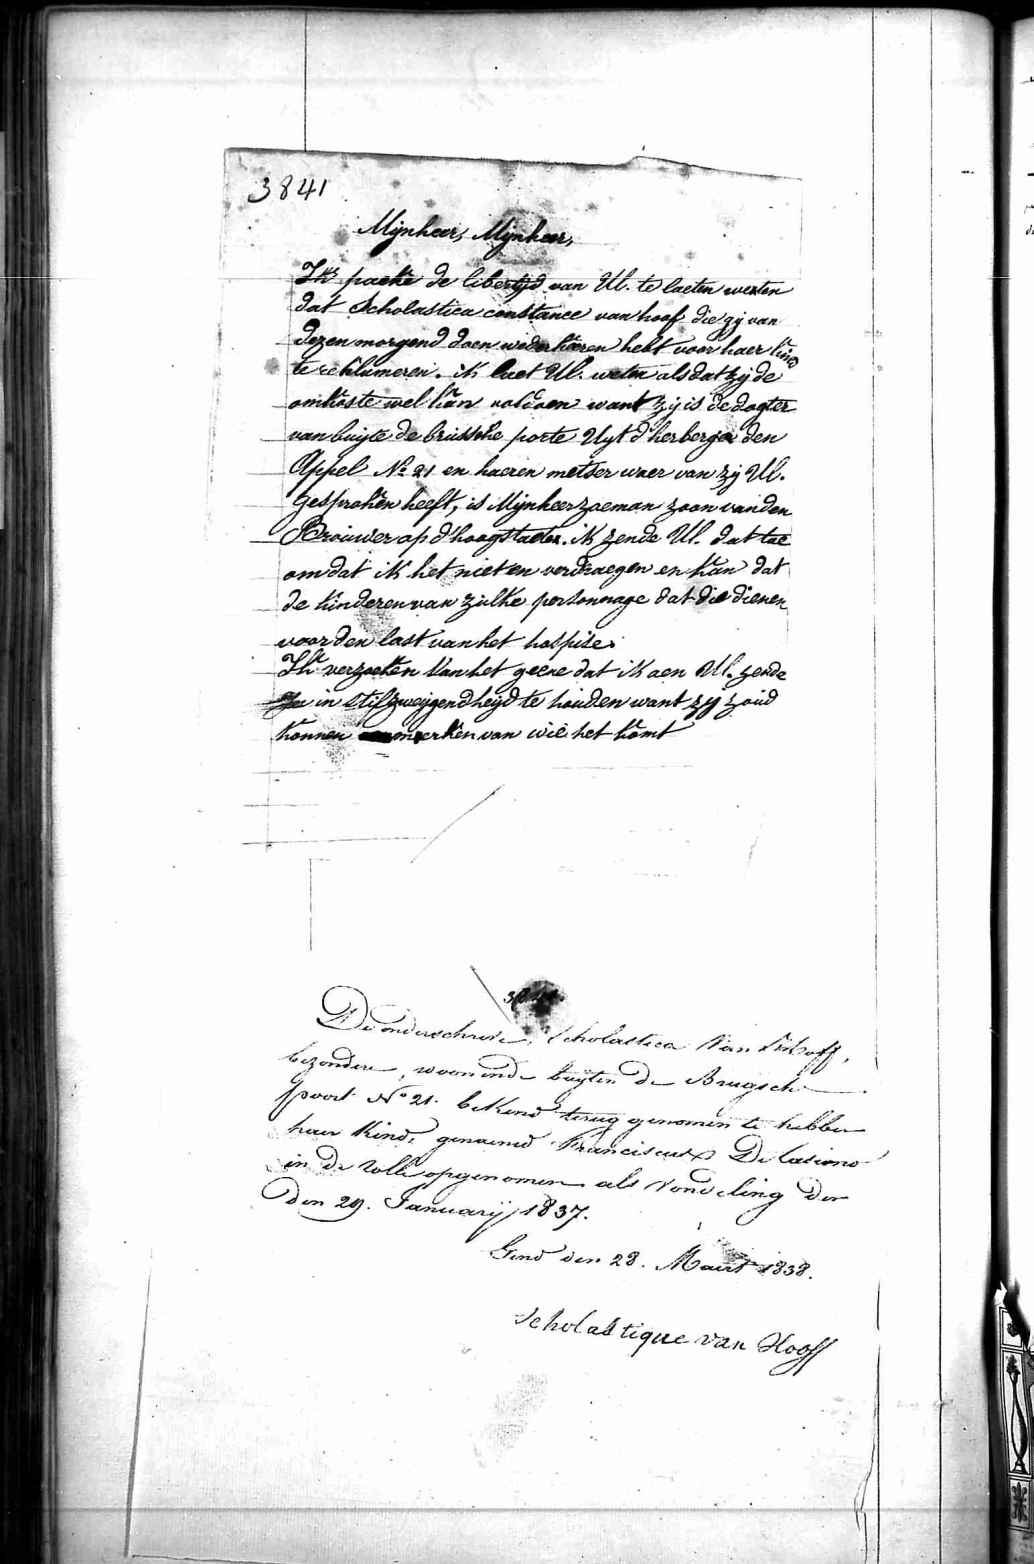 3841
Mijnheer, Mijnheer,
Ik packe de libertijd van Ul. te laeten weeten
dat Scholastica constance van hoof die gij van
dezen morgend doen wederkeeren hebt voor haer kind
te reklameren. ik laet Ul. weten als dat zy de
onkoste wel kan voldoen want zy is de dogter
van buijte de brussche porte Uyt d'herberge den
Appel No 21 en haeren metser waer van zy Ul.
gesproken heeft, is Mijnheer zoeman zoon van den
Brouwer op d'hoogstaeten. ik zende Ul. dat toe
omdat ik het niet en verdraegen en kan dat
de kinderen van zulke personnage dat die dienen
voor den last van het hospise.
Ik verzoeken van het geene dat ik aen Ul. zende
in stilzweijgendheyd te houden want zy zoud
konnen aenmerken van wie het komt
3841.
De onderschreve, Scholastica Van Hooff,
bezondere, woonende buijten de Brugsche
poort No 21. bekend terug genomen te hebben
haer kind, genaemd Franciscus
in de rolle opgenomen als vondeling der
den 29. Januarij 1837.
Gend den 28. Maert 1838.
Scholastique van Hooff